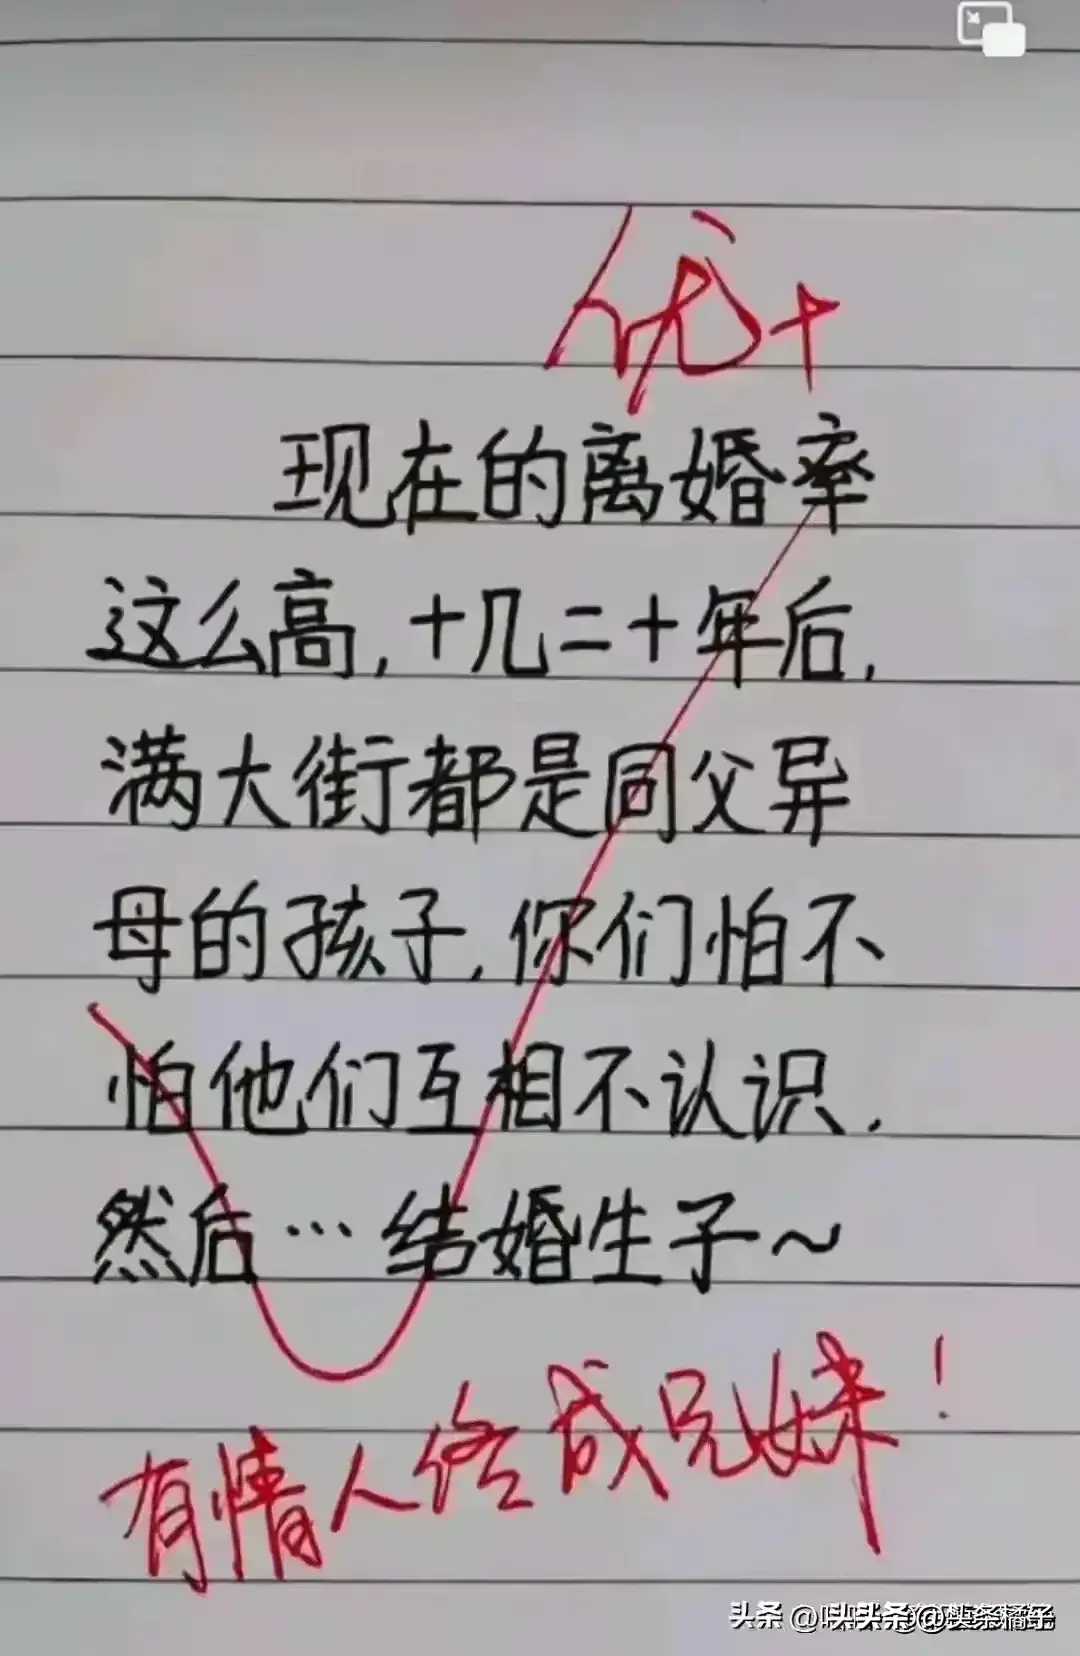 优+
现在的离婚率
这么高,十几二十年后,
满大街都是同父异
母的孩子,你们怕不
怕他们互相不认识.
然后…结婚生子~
有情人终成兄妹!
头条 @头条橘子